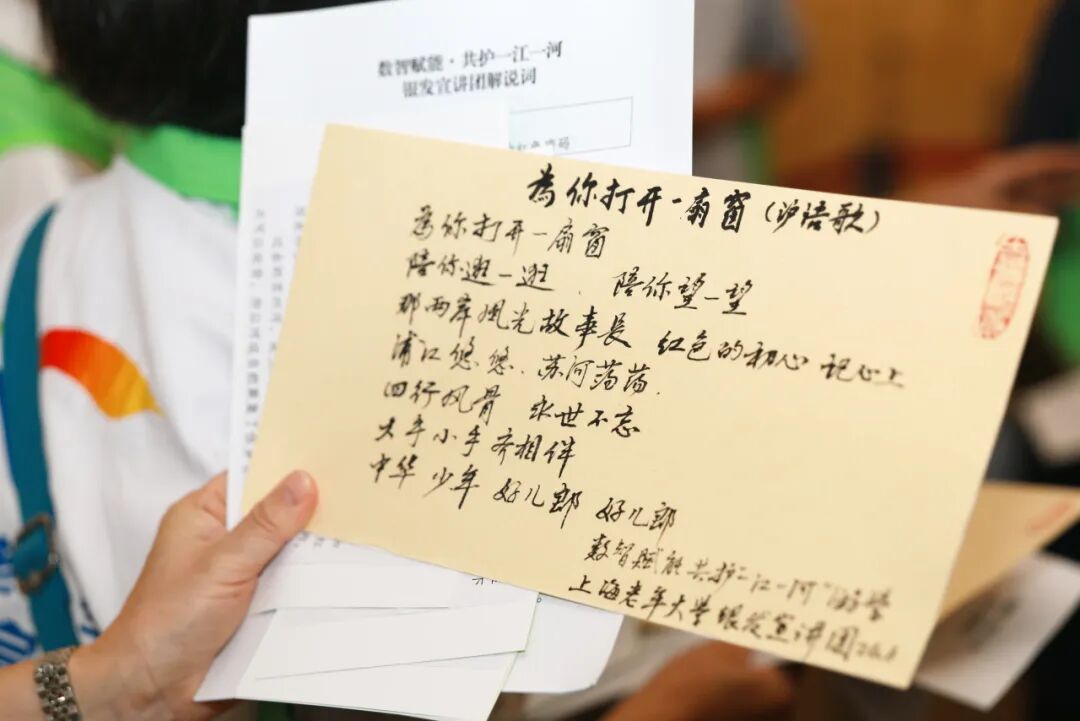 数智赋能·共护一江一河
银发宣讲团解说词
為你打开一扇窗（沪语歌）
為你打开一扇窗
陪你逛一逛、陪你望一望
那两岸风光故事長 红色的初心 记心上
浦江悠悠、苏河荡荡.
四行风骨 永世不忘
大手小手齐相伴
中华 少年 好儿郎 好儿郎
数智赋能共护"一江一河"
上海老年大学银发宣讲团